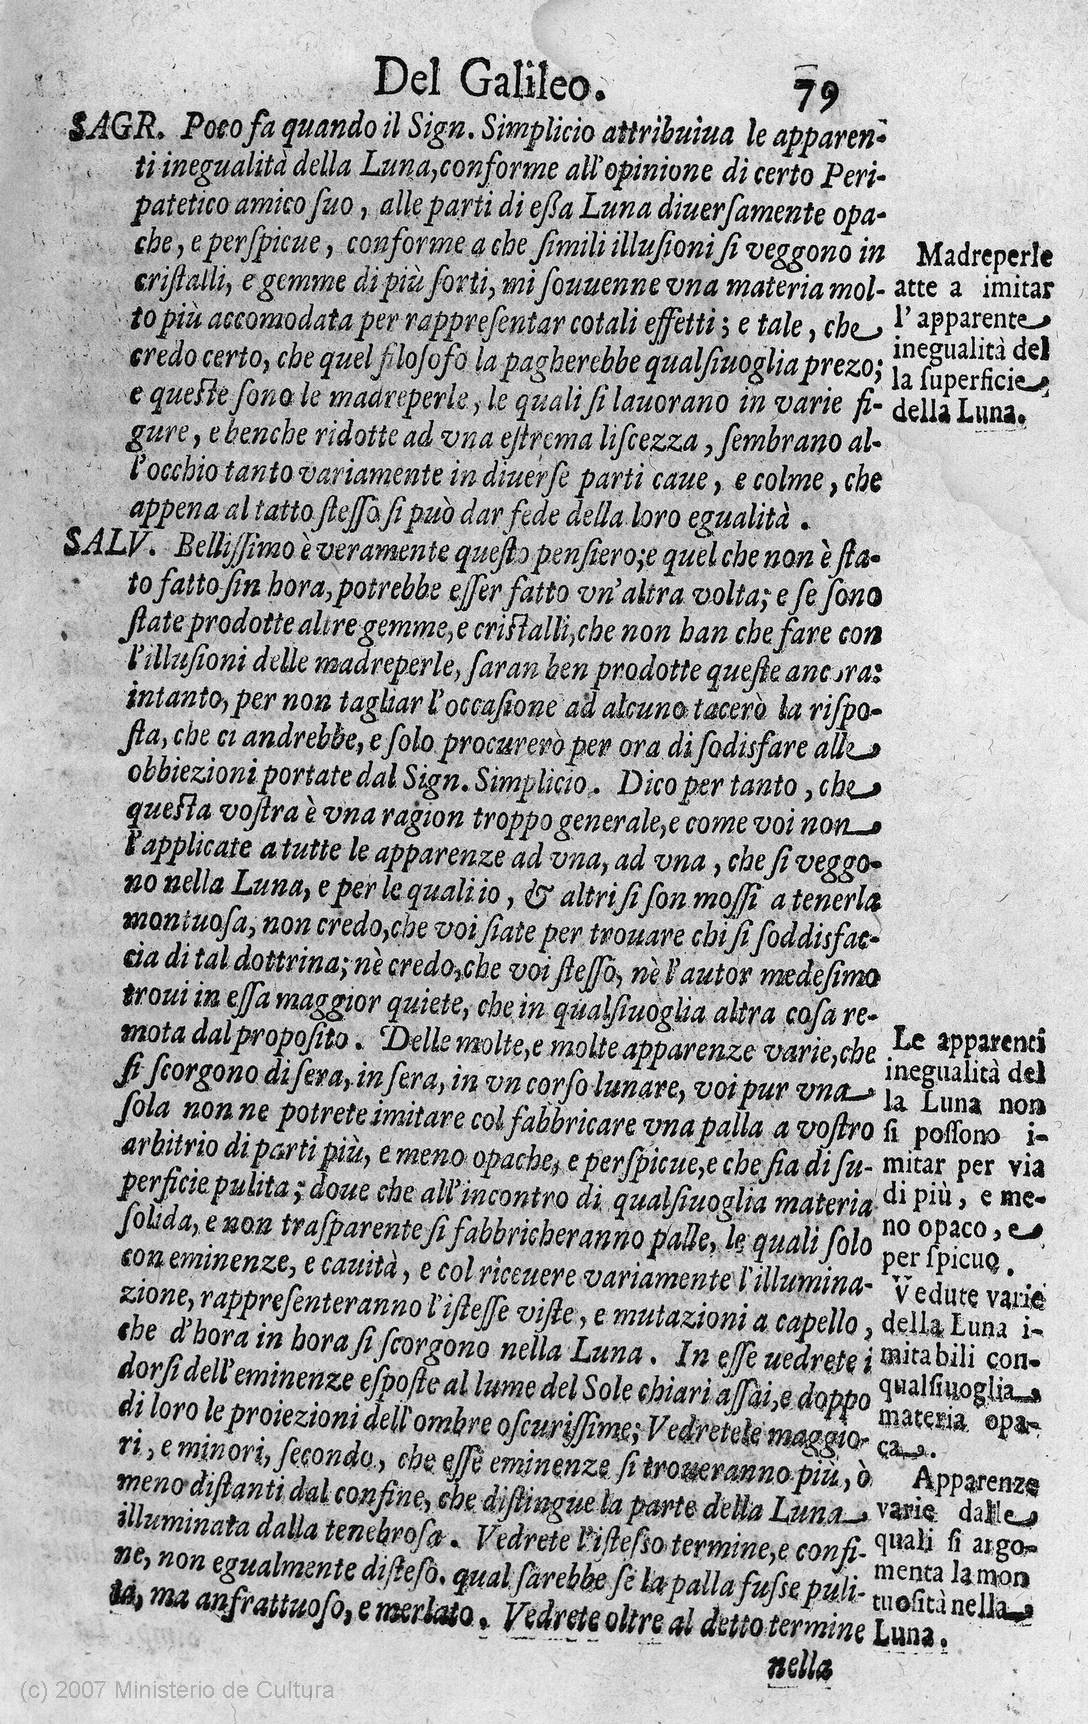 Del Galileo. 79
SAGR. Poco fa quando il Sign. Simplicio attribuiua le apparen-
ti inegualità della Luna, conforme all'opinione di certo Peri-
patetico amico ſuo, alle parti di eßa Luna diuerſamente opa-
che, e perſpicue, conforme a che ſimili illuſioni ſi veggono in
criſtalli, e gemme di più ſorti, mi ſouuenne vna materia mol-
to più accomodata per rappreſentar cotali effetti; e tale, che
credo certo, che quel filoſofo la pagherebbe qualſiuoglia prezo;
e queſte ſono le madreperle, le quali ſi lauorano in varie fi-
gure, e benche ridotte ad vna eſtrema liſcezza, ſembrano al-
l'occhio tanto variamente in diuerſe parti caue, e colme, che
appena al tatto ſteſſo ſi può dar fede della loro egualità.
Madreperle
atte a imitar
l'apparente
inegualità del
la ſuperficie
della Luna.
SALV. Belliſſimo è veramente queſto penſiero; e quel che non è ſta-
to fatto ſin hora, potrebbe eſſer fatto vn'altra volta; e ſe ſono
ſtate prodotte altre gemme, e criſtalli, che non han che fare con
l'illuſioni delle madreperle, ſaran ben prodotte queſte ancora:
intanto, per non tagliar l'occaſione ad alcuno tacerò la riſpo-
ſta, che ci andrebbe, e ſolo procurerò per ora di ſodisfare alle
obbiezioni portate dal Sign. Simplicio. Dico per tanto, che
queſta voſtra è vna ragion troppo generale, e come voi non
l'applicate a tutte le apparenze ad vna, ad vna, che ſi veggo-
no nella Luna, e per le quali io, & altri ſi ſon moſſi a tenerla
montuoſa, non credo, che voi ſiate per trouare chi ſi ſoddisfac-
cia di tal dottrina; nè credo, che voi ſteſſo, nè l'autor medeſimo
troui in eſſa maggior quiete, che in qualſiuoglia altra coſa re-
mota dal propoſito. Delle molte, e molte apparenze varie, che
ſi ſcorgono di ſera, in ſera, in vn corſo lunare, voi pur vna
ſola non ne potrete imitare col fabbricare vna palla a voſtro
arbitrio di parti più, e meno opache, e perſpicue, e che ſia di ſu-
perficie pulita; doue che all'incontro di qualſiuoglia materia
ſolida, e non traſparente ſi fabbricheranno palle, le quali ſolo
con eminenze, e cauità, e col riceuere variamente l'illumina-
zione, rappreſenteranno l'iſteſſe viſte, e mutazioni a capello,
che d'hora in hora ſi ſcorgono nella Luna. In eſſe uedrete i
dorſi dell'eminenze eſpoſte al lume del Sole chiari aſſai, e doppo
di loro le proiezioni dell'ombre oſcuriſſime; Vedretele maggio-
ri, e minori, ſecondo, che eſſe eminenze ſi troueranno più, ò
meno diſtanti dal confine, che diſtingue la parte della Luna
illuminata dalla tenebroſa. Vedrete l'iſteſſo termine, e confi-
ne, non egualmente diſteſo, qual ſarebbe ſe la palla fuſſe puli-
ta, ma anfrattuoſo, e merlato. Vedrete oltre al detto termine
Le apparenti
inegualità del
la Luna non
ſi poſſono i-
mitar per via
di più, e me-
no opaco, e
perſpicuo.
Vedute varie
della Luna i-
mitabili con
qualſiuoglia
materia opa-
ca.
Apparenze
varie dalle
quali ſi argo-
menta la mon
tuoſità nella
Luna.
nella
(c) 2007 Ministerio de Cultura